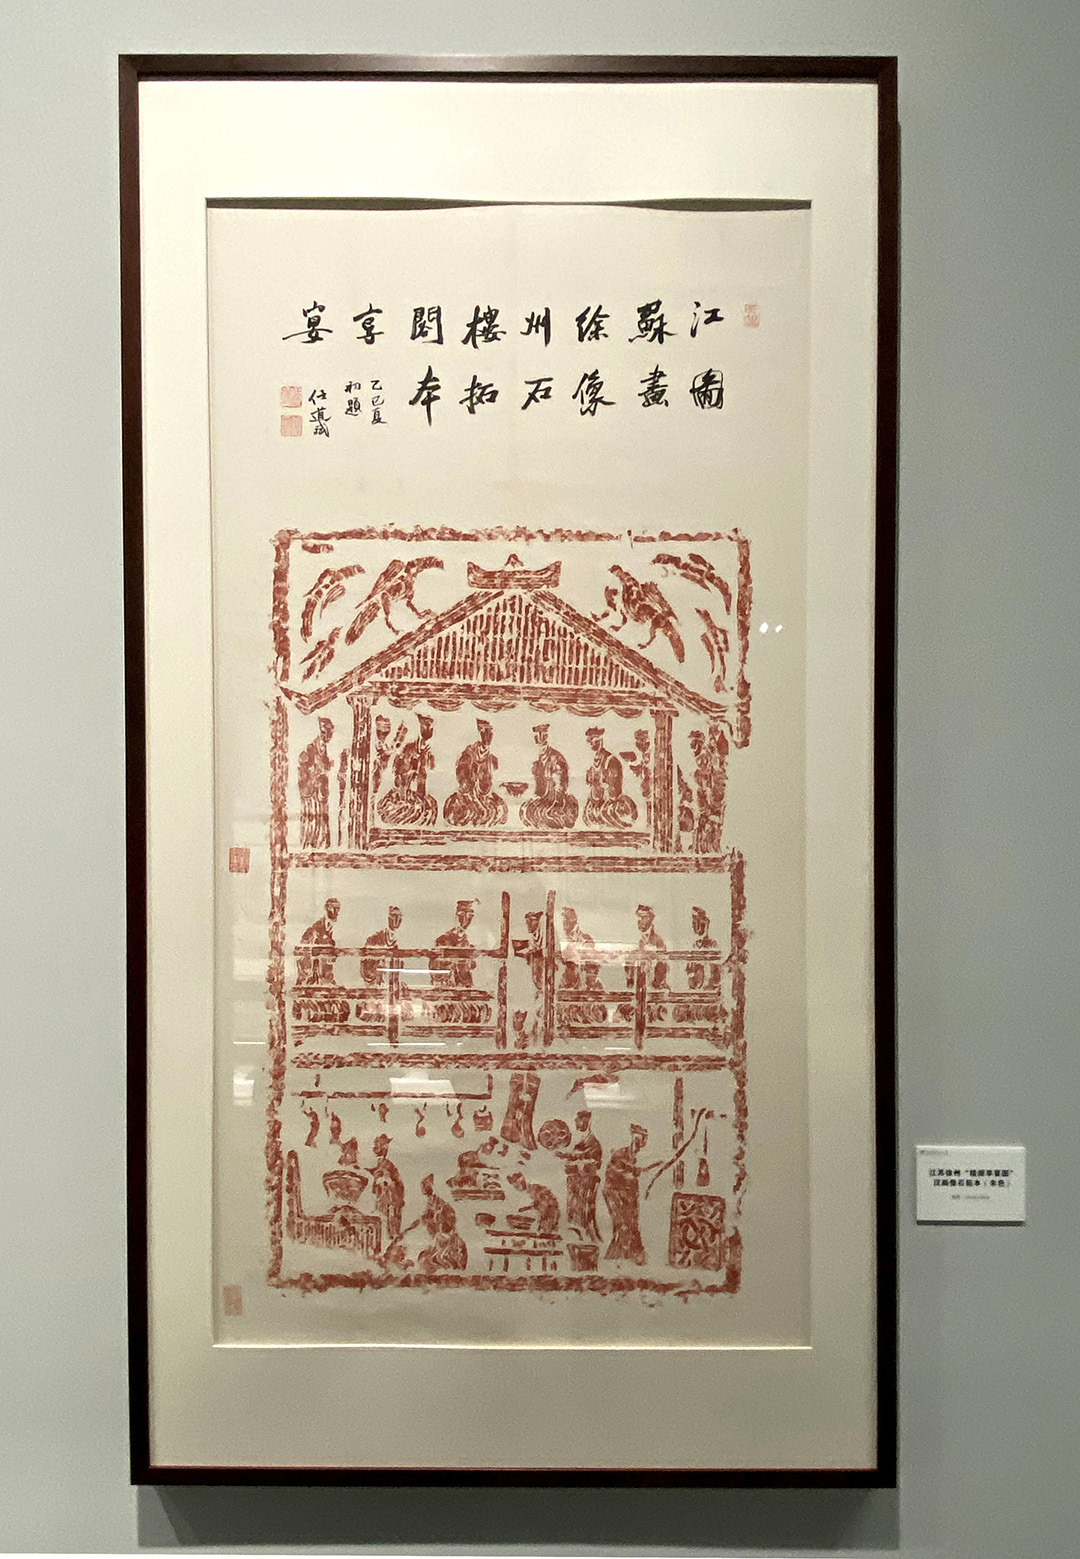 江蘇徐州樓閣享宴
圖畫像石拓本
乙巳夏
初題
任道斌
江苏徐州“楼阁享宴图”
汉画像石拓本（朱色）